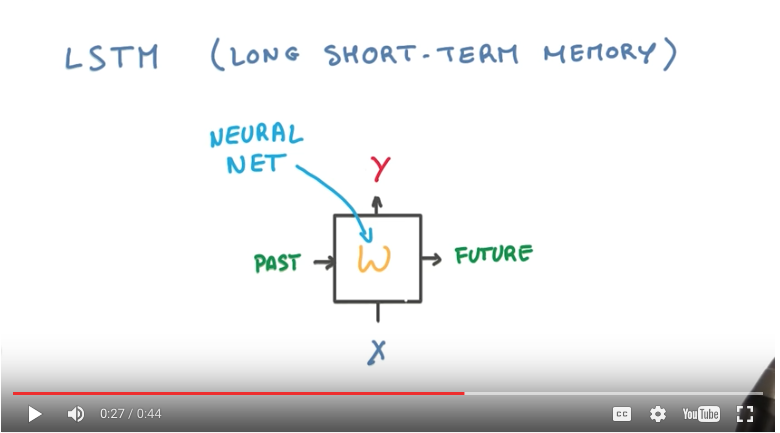 LSTM (LONG SHORT-TERM MEMORY)
NEURAL
NET
Y
PAST
W
FUTURE
X
0:27 / 0:44
CC
YouTube